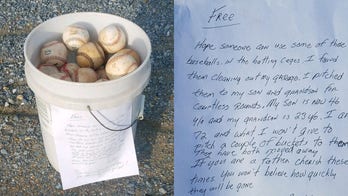 Free
Hope someone can use some of these
baseballs. in the batting cages I found
them cleaning out my garage. I pitched
them to my son and grandson for
countless rounds. My son is now 46
and my grandson is 23. I am
72 and what I won't give to
pitch a couple of buckets to them
they have both moved away
If you are a father cherish these
times You won't believe how quickly
they will be gone.